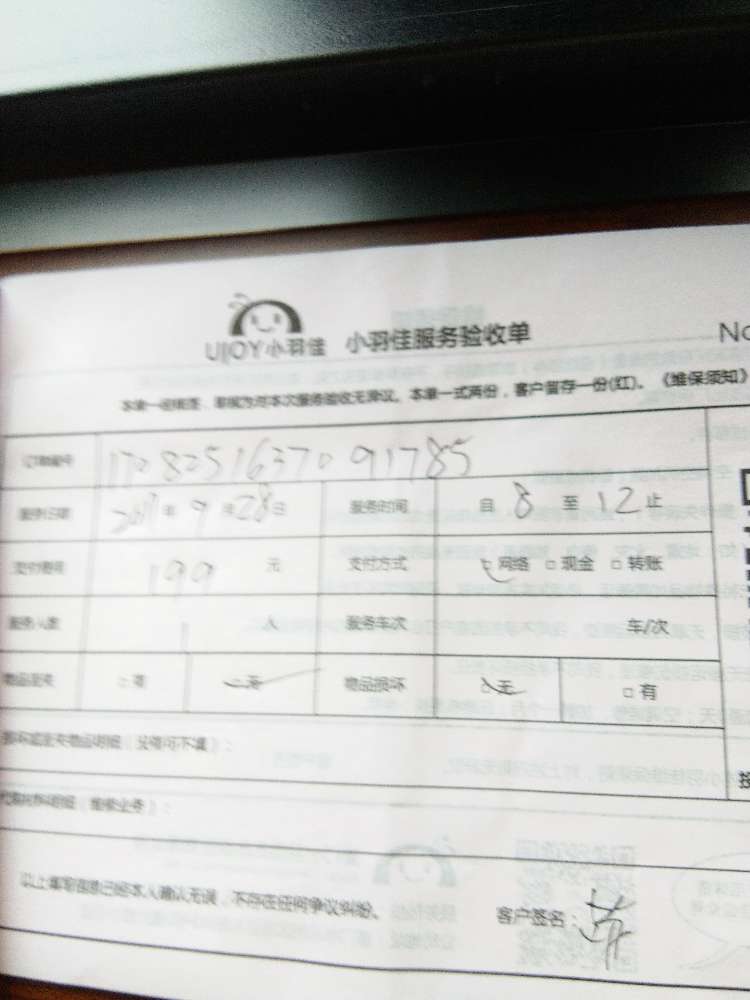 UJOY小羽佳 小羽佳服务验收单 No
本单一经签, 视为对本次服务验收无异议。本单一式两份，客户留存一份(红)。《维保须知》
订单编号 17082516370 91785
服务日期 2017年 9 月 28日 服务时间 自 8 至 12 止
支付费用 199 元 支付方式 网络 □ 现金 □ 转账
服务人数 1 人 服务车次 车/次
物品丢失 □有 无 物品损坏 无 □有
损坏或丢失物品明细（没有可不填）：
材料明细（维修业务）：
以上填写信息已经本人确认无误，不存在任何争议纠纷。 客户签名：